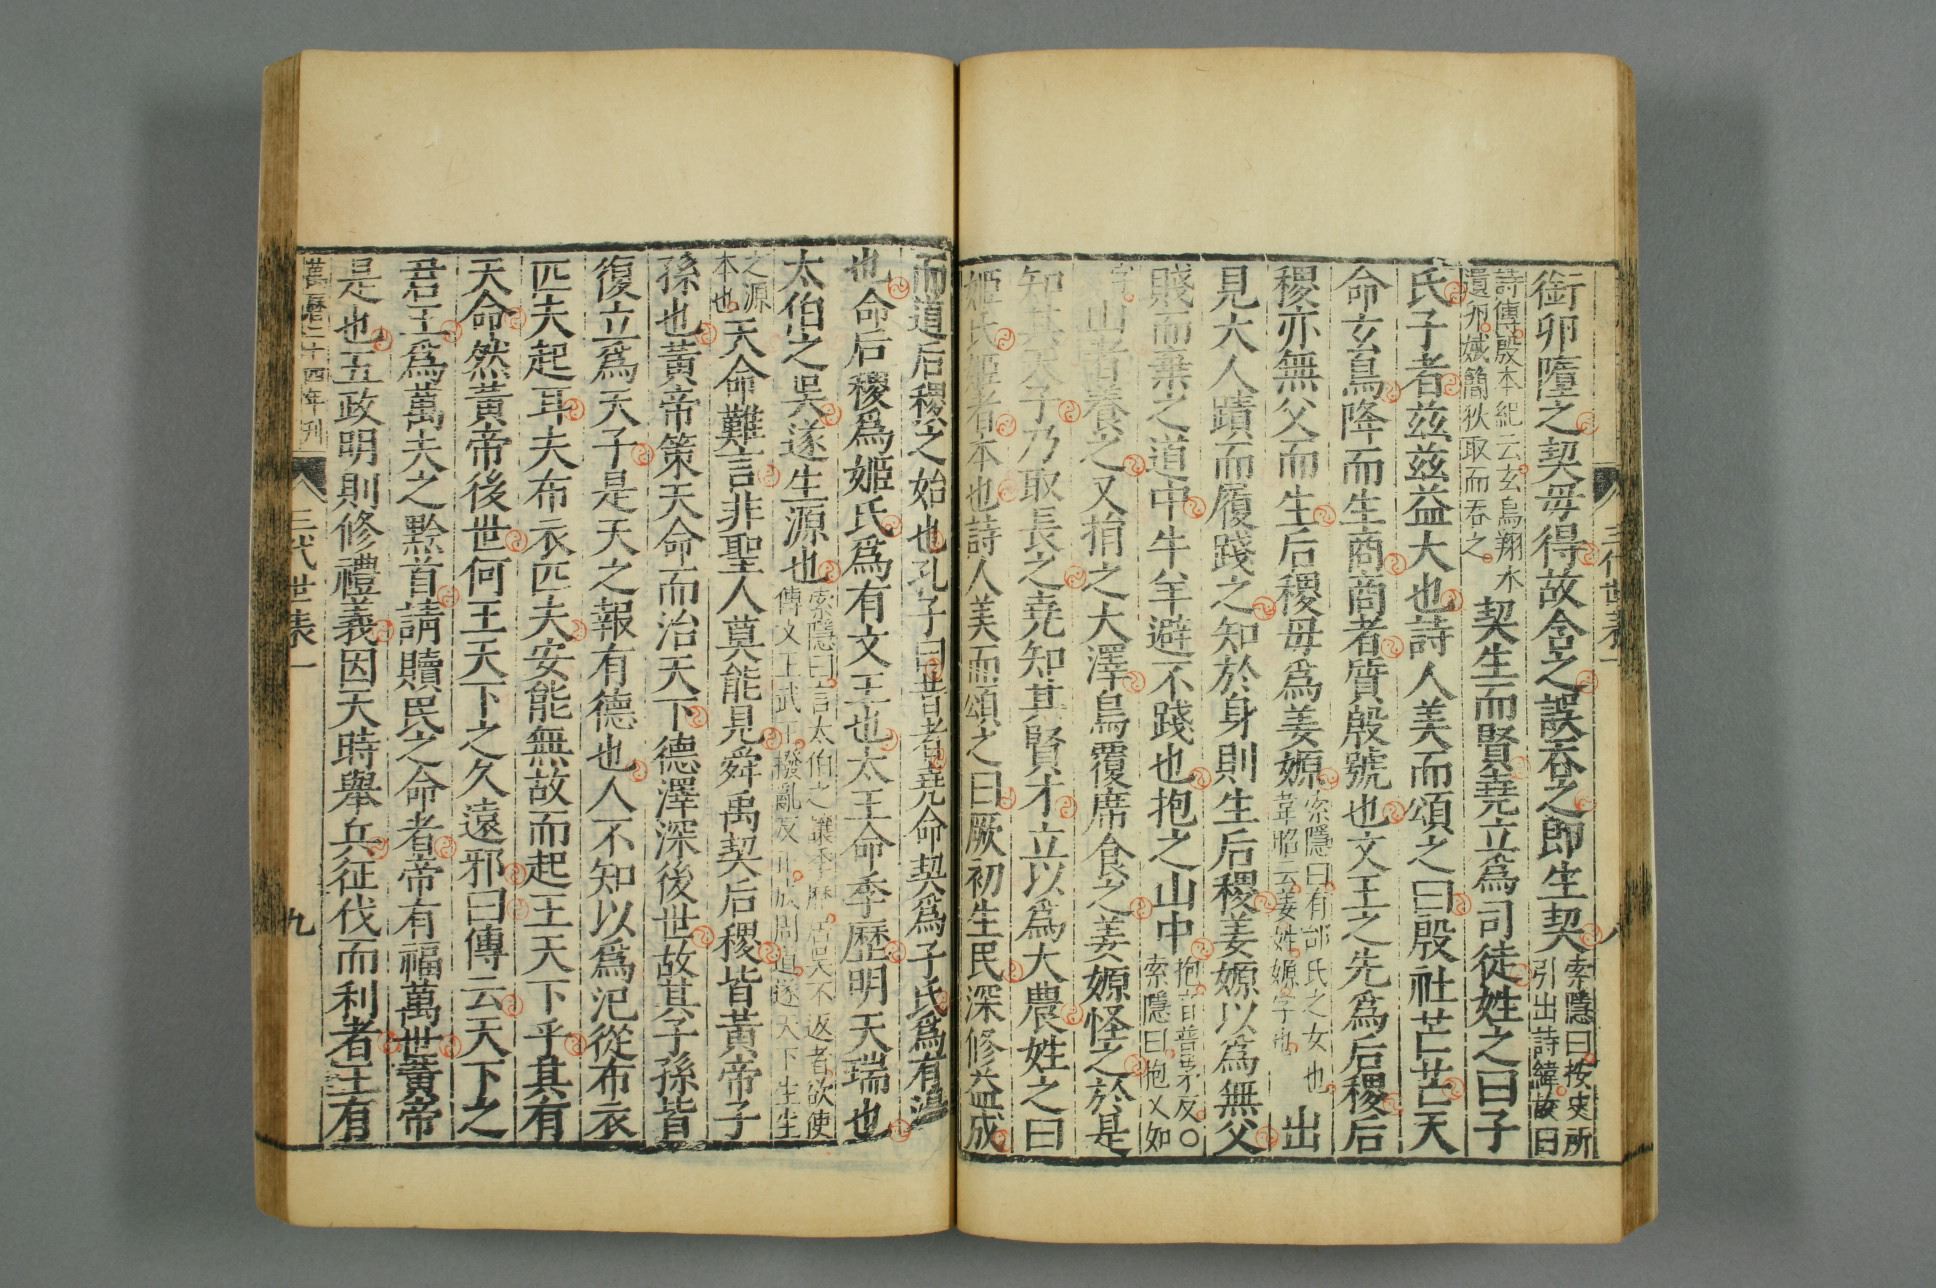 三代世表一
八
銜卵墮之契母得故含之誤吞之即生契索隱曰按史所引出詩緯故曰
詩傳殷本紀云玄鳥翔水遺卵娀簡狄取而吞之契生而賢堯立爲司徒姓之曰子
氏子者茲茲益大也詩人美而頌之曰殷社芒芒天
命玄鳥降而生商商者質殷號也文王之先爲后稷后
稷亦無父而生后稷母爲姜嫄索隱曰有邰氏之女也韋昭云姜姓嫄字也出
見大人蹟而履踐之知於身則生后稷姜嫄以爲無父
賤而棄之道中牛羊避不踐也抱之山中抱音普茅反○索隱曰抱又如
字山者養之又捐之大澤鳥覆席食之姜嫄怪之於是
知其天子乃取長之堯知其賢才立以爲大農姓之曰
姬氏姬者本也詩人美而頌之曰厥初生民深修益成
而道后稷之始也孔子曰昔者堯命契爲子氏爲有湯
也命后稷爲姬氏爲有文王也太王命季歷明天瑞也
太伯之吳遂生源也索隱曰言太伯之讓季歷居吳不返者欲使傳文王武王撥亂反正成周道遂天下生生
之源本也天命難言非聖人莫能見舜禹契后稷皆黃帝子
孫也黃帝策天命而治天下德澤深後世故其子孫皆
復立爲天子是天之報有德也人不知以爲氾從布衣
匹夫起耳夫布衣匹夫安能無故而起王天下乎其有
天命然黃帝後世何王天下之久遠邪曰傳云天下之
君王爲萬夫之黔首請贖民之命者帝有福萬世黃帝
是也五政明則修禮義因天時舉兵征伐而利者王有
萬曆二十四年刊
三代世表一
九